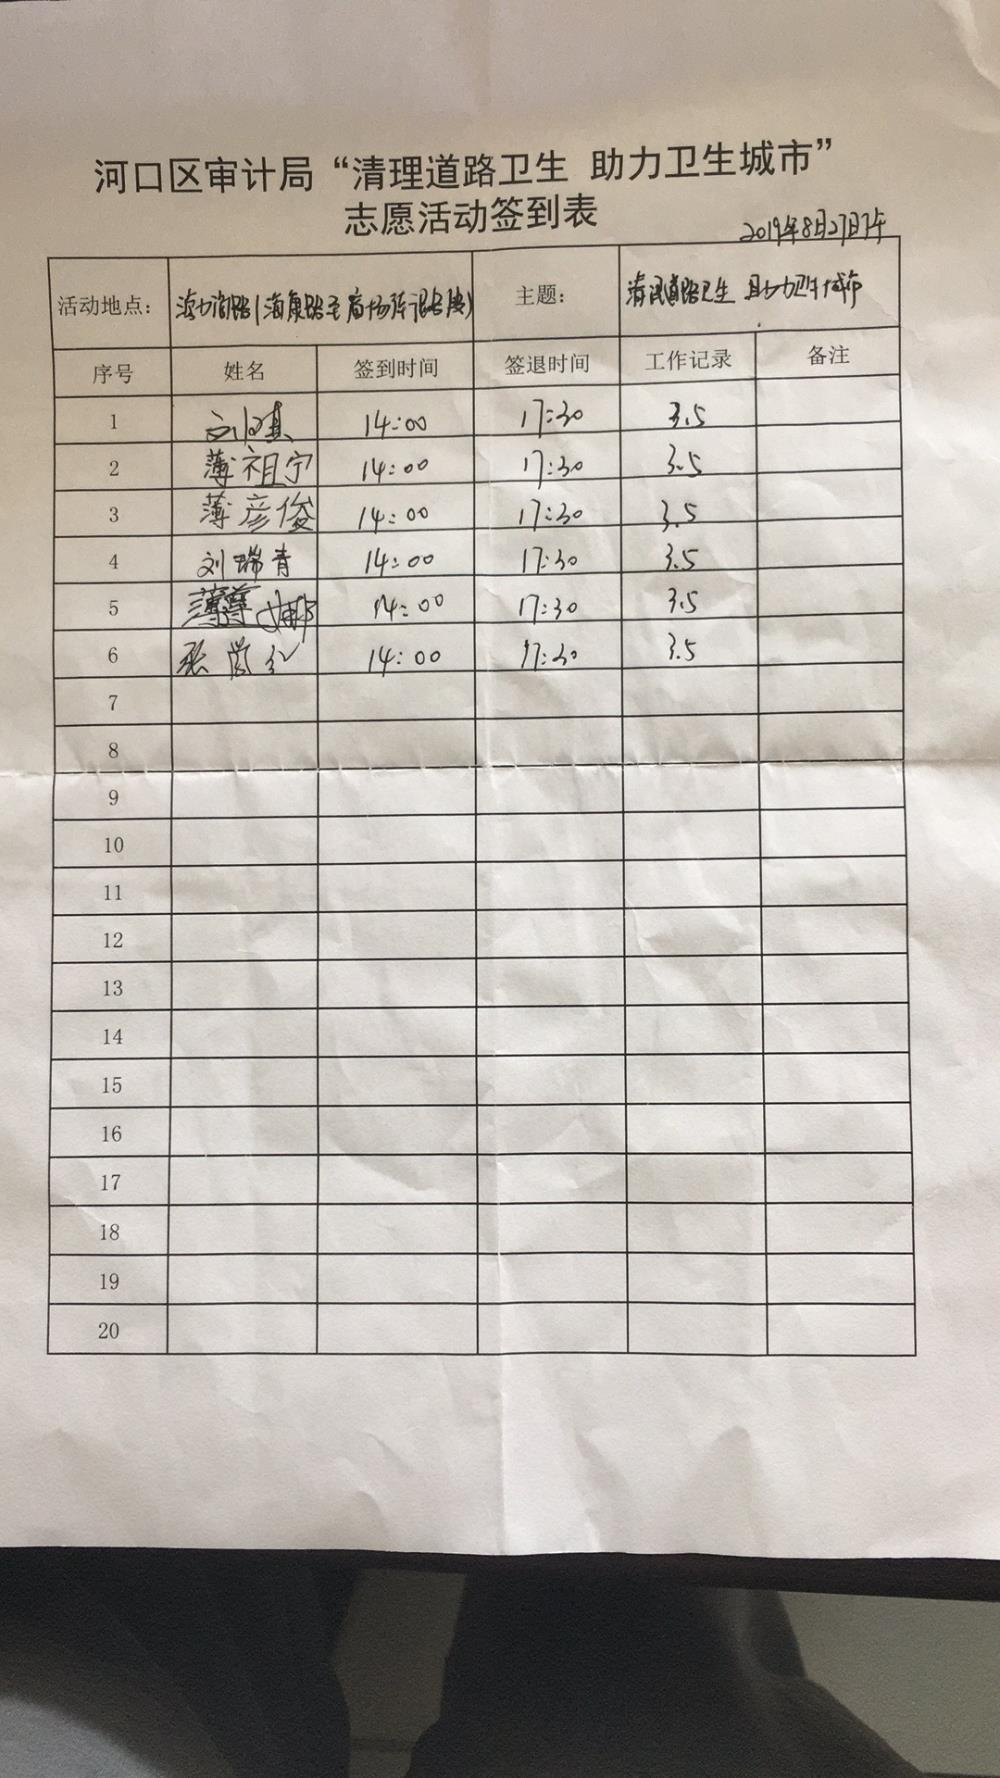 河口区审计局“清理道路卫生 助力卫生城市”
志愿活动签到表
2019年8月27日下午
活动地点： 主题： 清理道路卫生 助力卫生城市
序号 姓名 签到时间 签退时间 工作记录 备注
1 14:00 17:30 3.5
2 薄祖宁 14:00 17:30 3.5
3 薄彦俊 14:00 17:30 3.5
4 刘瑞青 14:00 17:30 3.5
5 14:00 17:30 3.5
6 张 14:00 17:30 3.5
7
8
9
10
11
12
13
14
15
16
17
18
19
20